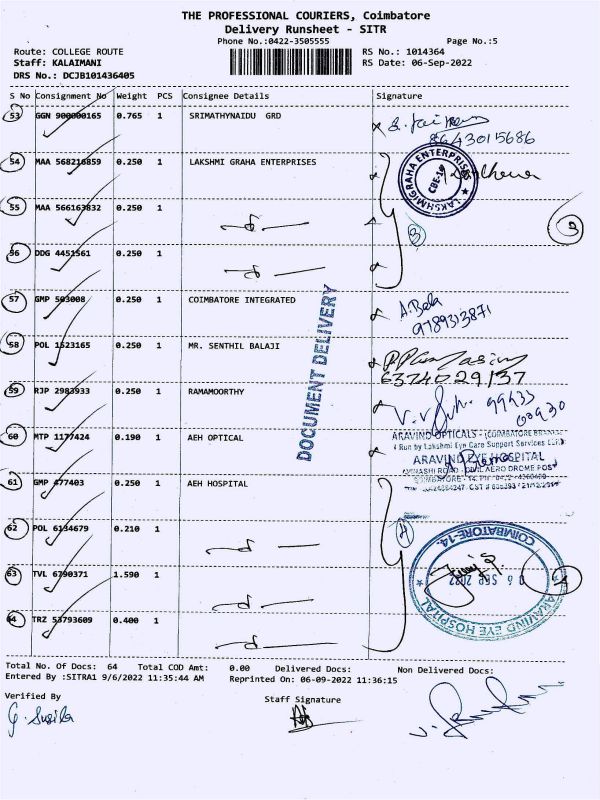 THE PROFESSIONAL COURIERS, Coimbatore
Delivery Runsheet - SITR
Phone No.:0422-3505555 Page No.:5
Route: COLLEGE ROUTE RS No.: 1014364
Staff: KALAIMANI RS Date: 06-Sep-2022
DRS No.: DCJB101436405
S No Consignment No Weight PCS Consignee Details Signature
53 GGN 900000165 0.765 1 SRIMATHYNAIDU GRD
8643015686
54 MAA 568216859 0.250 1 LAKSHMI GRAHA ENTERPRISES
LAKSHMIGRAHA ENTERPRISES
CBE-14
55 MAA 566163832 0.250 1
3
3
56 DDG 4451561 0.250 1
57 GMP 503008 0.250 1 COIMBATORE INTEGRATED
A. Bela
9789313871
58 POL 1523165 0.250 1 MR. SENTHIL BALAJI
6374029137
DOCUMENT DELIVERY
59 RJP 2983933 0.250 1 RAMAMOORTHY
99433
00930
60 MTP 1177424 0.190 1 AEH OPTICAL
ARAVIND OPTICALS - (COIMBATORE BRANCH)
( Run by Lakshmi Eye Care Support Services
ARAVIND EYE HOSPITAL
AVINASHI ROAD - CIVIL AERO DROME POST
COIMBATORE - 14,
61 GMP 477403 0.250 1 AEH HOSPITAL
62 POL 6134679 0.210 1
4
COIMBATORE-14.
63 TVL 6790371 1.590 1
06 SEP 2022
4
ARAVIND EYE HOSPITAL
64 TRZ 53793609 0.400 1
Total No. Of Docs: 64 Total COD Amt: 0.00 Delivered Docs: Non Delivered Docs:
Entered By :SITRA1 9/6/2022 11:35:44 AM Reprinted On: 06-09-2022 11:36:15
Verified By Staff Signature
G. Susila